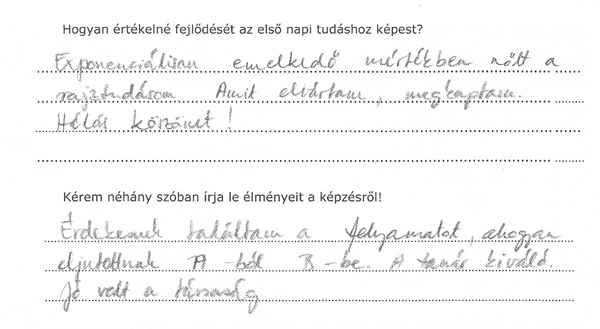 Hogyan értékelné fejlődését az első napi tudáshoz képest?
Exponenciálisan emelkedő mértékben nőtt a
rajztudásom Amit elvártam, megkaptam.
Hálás köszönet!
Kérem néhány szóban írja le élményeit a képzésről!
Érdekesnek találtam a folyamatot, ahogyan
eljutottnak A -ból B -be. A tanár kiváló.
Jó volt a társaság